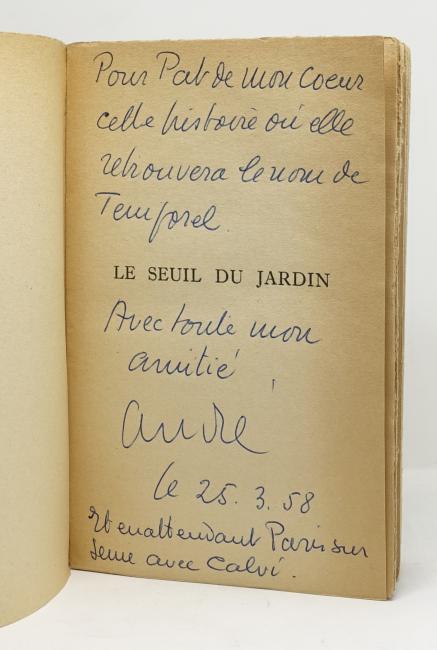 Pour Pat de mon coeur
cette histoire où elle
retrouvera le nom de
Temporel.
LE SEUIL DU JARDIN
Avec toute mon
amitié
André
le 25.3.58
Et en attendant Paris sur
Seine avec Calvi.